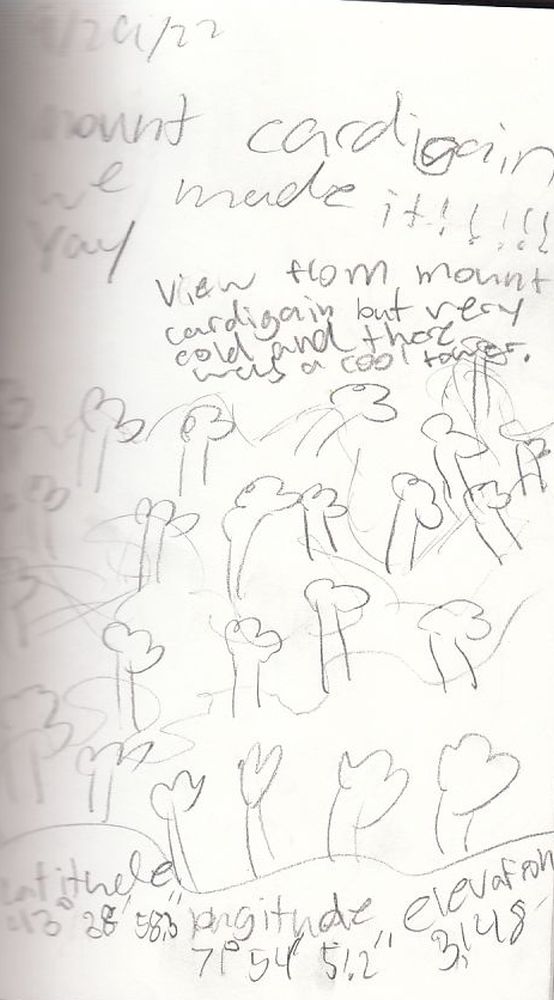 9/29/22
mount cardigain
we made it!!!!!
Yay
View from mount
cardigain but very
cold and there
was a cool tower.
latitude
43° 38' 58.3"
longitude
71° 54' 51.2"
elevation
3,148'